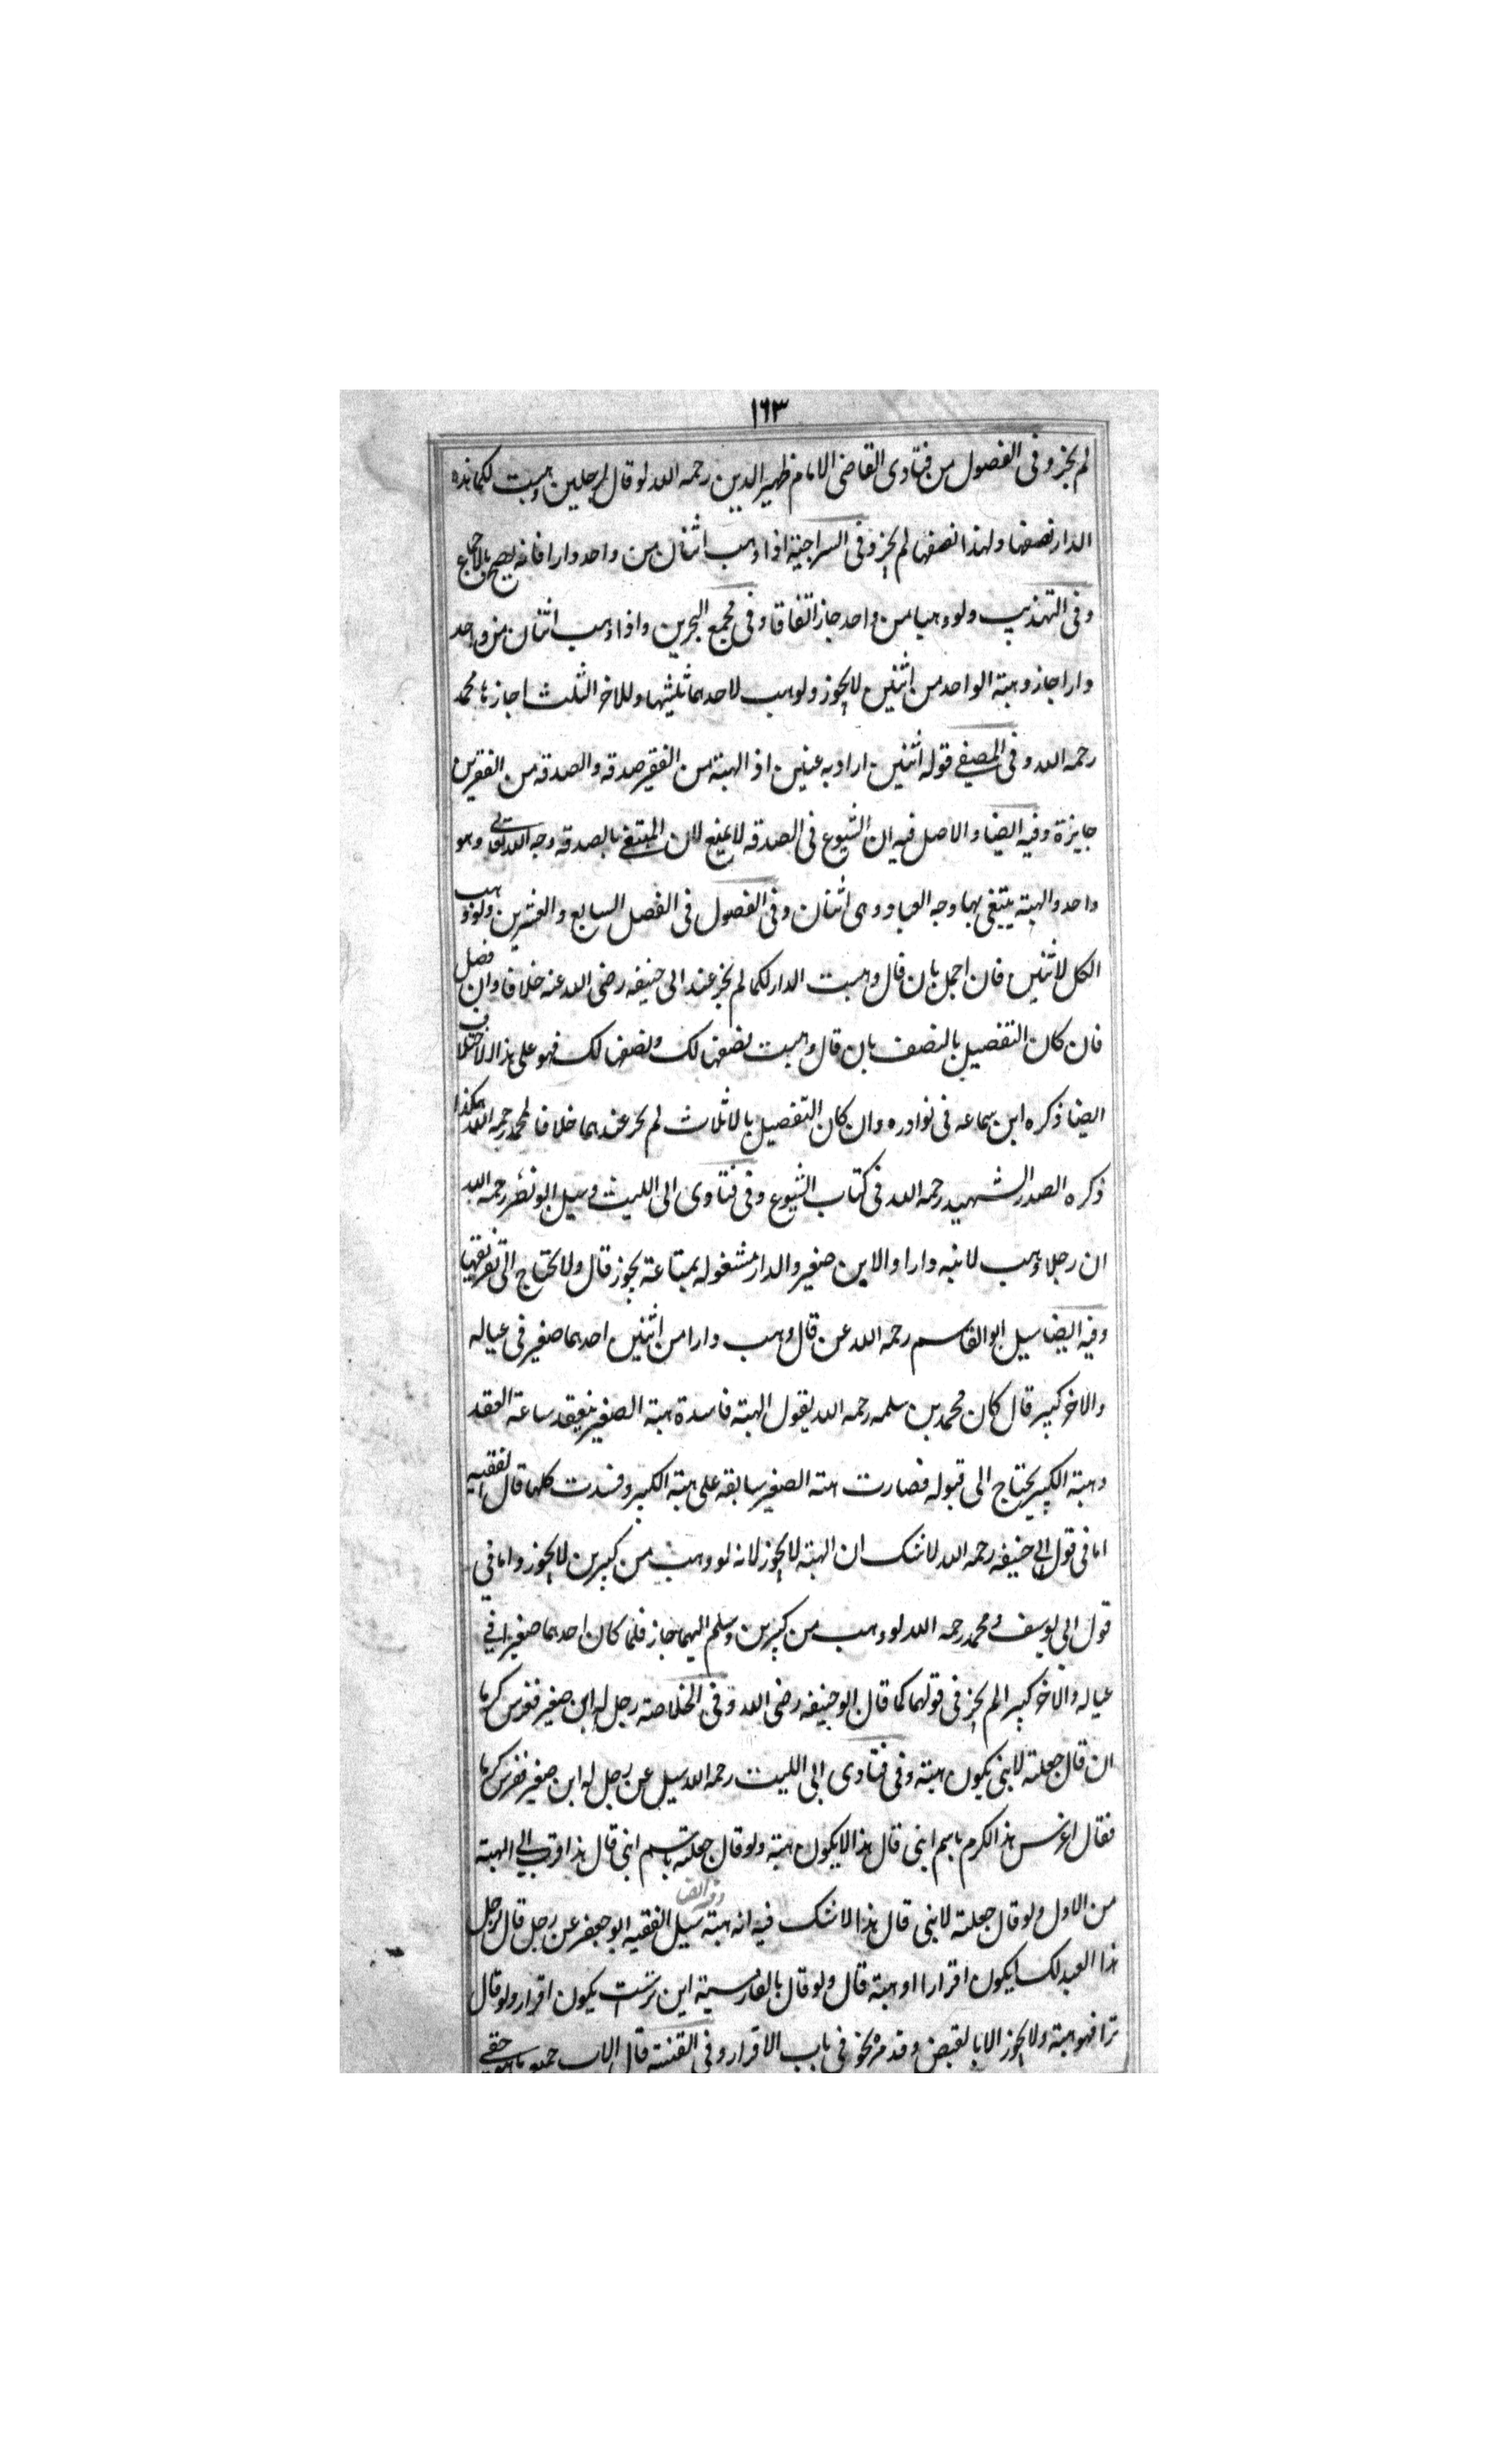 ١٦٣
لم يجز وفى الفصول من فتاوى القاضى الامام ظهير الدين رحمه الله لو قال لرجلين وهبت لكما هذه
الدار نصفها ولهذا نصفها لم يجز وفى السراجية اذا وهب اثنان من واحد دارا فانه يصح بالاجماع
وفى التهذيب ولو وهبا من واحد جاز اتفاقا وفى مجمع البحرين واذا وهب اثنان من واحد
دارا جاز وهبة الواحد من اثنين لا يجوز ولو وهب لاحدهما ثلثيها وللاخر الثلث اجازها محمد
رحمه الله وفى المصفى قوله اثنين اراد به غنيين اذ الهبة من الفقير صدقه والصدقه من الفقيرين
جايزة وفيه ايضا والاصل فيه ان الشيوع فى الصدقه لا يمنع لان المبتغى بالصدقه وجه الله تعالى وهو
واحد والهبة يبتغى بها وجه العباد وهى اثنان وفى الفصول فى الفصل السابع والعشرين ولو وهب
الكل لاثنين فان اجمل بان قال وهبت الدار لكما لم يجز عند ابى حنيفه رضى الله عنه خلافا وان فصل
فان كان التفضيل بالنصف بان قال وهبت نصفها لك ونصفها لك فهو على هذا الاختلاف
ايضا ذكره ابن سماعه فى نوادره وان كان التفضيل بالاثلاث لم يجز عندهما خلافا لمحمد رحمه الله هكذا
ذكره الصدر الشهيد رحمه الله فى كتاب الشيوع وفى فتاوى ابى الليث وسيل ابو نصر رحمه الله
ان رجلا وهب لابنه دارا والابن صغير والدار مشغوله بمتاعة يجوز قال ولا يحتاج الى تفريقها
وفيه ايضا سيل ابو القاسم رحمه الله عن قال وهب دارا من اثنين احدهما صغير فى عياله
والاخر كبير قال كان محمد بن سلمه رحمه الله يقول الهبة فاسدة هبة الصغير ينعقد ساعة العقد
وهبة الكبير يحتاج الى قبوله فصارت هبة الصغير سابقه على هبة الكبير وفسدت كلها قال الفقيه
اما فى قول ابى حنيفه رحمه الله لا شك ان الهبة لا يجوز لانه لو وهب من كبيرين لا يجوز واما فى
قول ابى يوسف ومحمد رحمه الله لو وهب من كبيرين وسلم اليهما جاز فلما كان احدهما صغيرا فى
عياله والاخر كبيرا لم يجز فى قولهما كما قال ابو حنيفه رضى الله وفى الخلاصة رجل له ابن صغير فغرس كرما
ان قال جعلته لابنى يكون هبة وفى فتاوى ابى الليث رحمه الله سيل عن رجل له ابن صغير فغرس كرما
فقال اغرس هذا الكرم باسم ابنى قال هذا لا يكون هبة ولو قال جعلته باسم ابنى قال هذا اقرب الى الهبة
من الاول ولو قال جعلته لابنى قال هذا لا شك فيه انه هبة وفيه ايضا سيل الفقيه ابو جعفر عن رجل قال لرجل
هذا العبد لك ايكون اقرارا او هبة قال ولو قال بالفارسية اين تراست يكون اقرار ولو قال
ترا فهو هبة ولا يجوز الا بالقبض وقد مر نحو فى باب الاقرار وفى القنية قال الاب جميع ما هو حقى